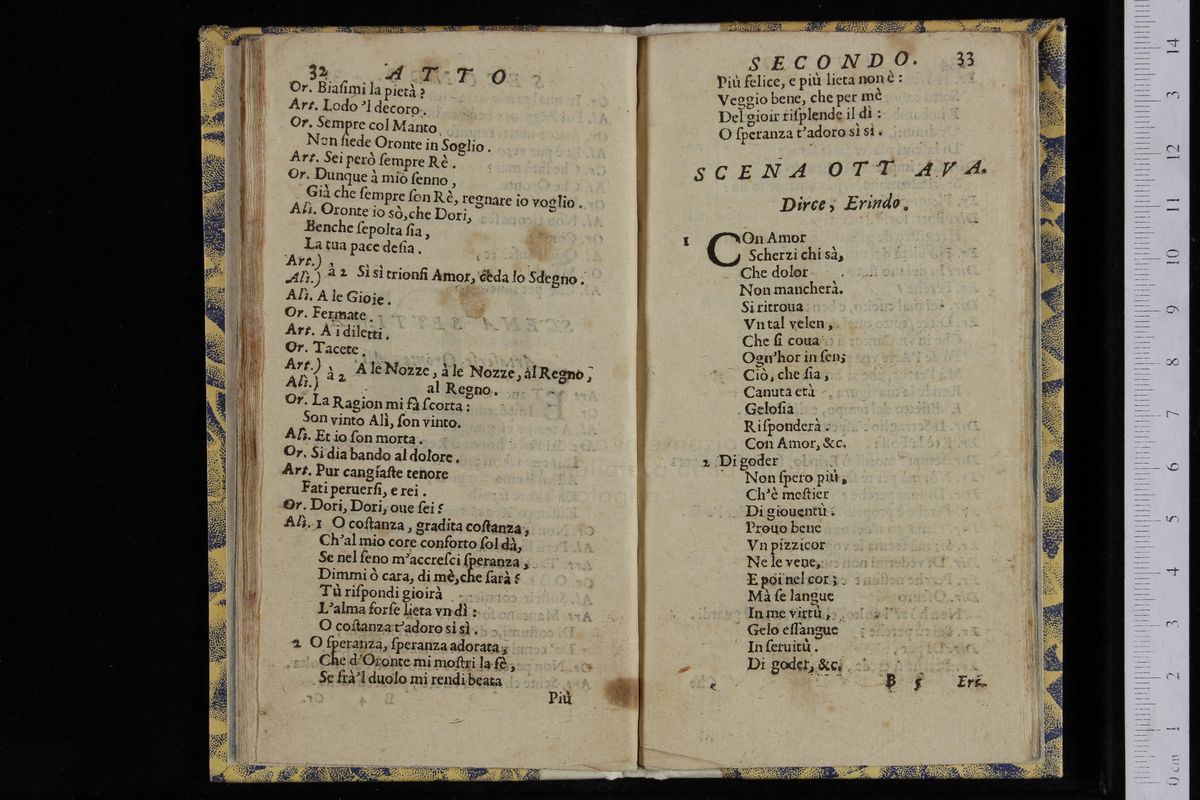 32 ATTO
Or. Biaſimi la pietà?
Art. Lodo 'l decoro.
Or. Sempre col Manto
Non ſiede Oronte in Soglio.
Art. Sei però ſempre Rè.
Or. Dunque à mio ſenno,
Già che ſempre ſon Rè, regnare io voglio.
Ali. Oronte io sò, che Dori,
Benche ſepolta ſia,
La tua pace deſia.
Art.)
Ali.) à 2 Sì sì trionfi Amor, ceda lo Sdegno.
Ali. A le Gioie.
Or. Fermate.
Art. A i diletti.
Or. Tacete.
Art.) à 2 A le Nozze, à le Nozze, àl Regno,
Ali.) al Regno.
Or. La Ragion mi fà ſcorta:
Son vinto Alì, ſon vinto.
Ali. Et io ſon morta.
Or. Si dia bando al dolore.
Art. Pur cangiaſte tenore
Fati peruerſi, e rei.
Or. Dori, Dori, oue ſei?
Ali. 1 O coſtanza, gradita coſtanza,
Ch'al mio core conforto ſol dà,
Se nel ſeno m'accreſci ſperanza,
Dimmi ò cara, di mè, che ſarà?
Tù riſpondi gioirà
L'alma forſe lieta vn dì:
O coſtanza t'adoro sì sì.
2 O ſperanza, ſperanza adorata,
Che d'Oronte mi moſtri la fè,
Se frà'l duolo mi rendi beata
Più
SECONDO. 33
Più felice, e più lieta non è:
Veggio bene, che per mè
Del gioir riſplende il dì:
O ſperanza t'adoro sì sì.
SCENA OTTAVA.
Dirce, Erindo.
1 COn Amor
Scherzi chi sà,
Che dolor
Non mancherà.
Si ritroua
Vn tal velen,
Che ſi coua
Ogn'hor in ſen;
Ciò, che ſia,
Canuta età
Geloſia
Riſponderà
Con Amor, &c.
2 Di goder
Non ſpero più,
Ch'è meſtier
Di giouentù:
Prouo bene
Vn pizzicor
Ne le vene,
E poi nel cor;
Mà ſe langue
In me virtù,
Gelo eſſangue
In ſeruitù.
Di goder, &c.
B 5 Eri.